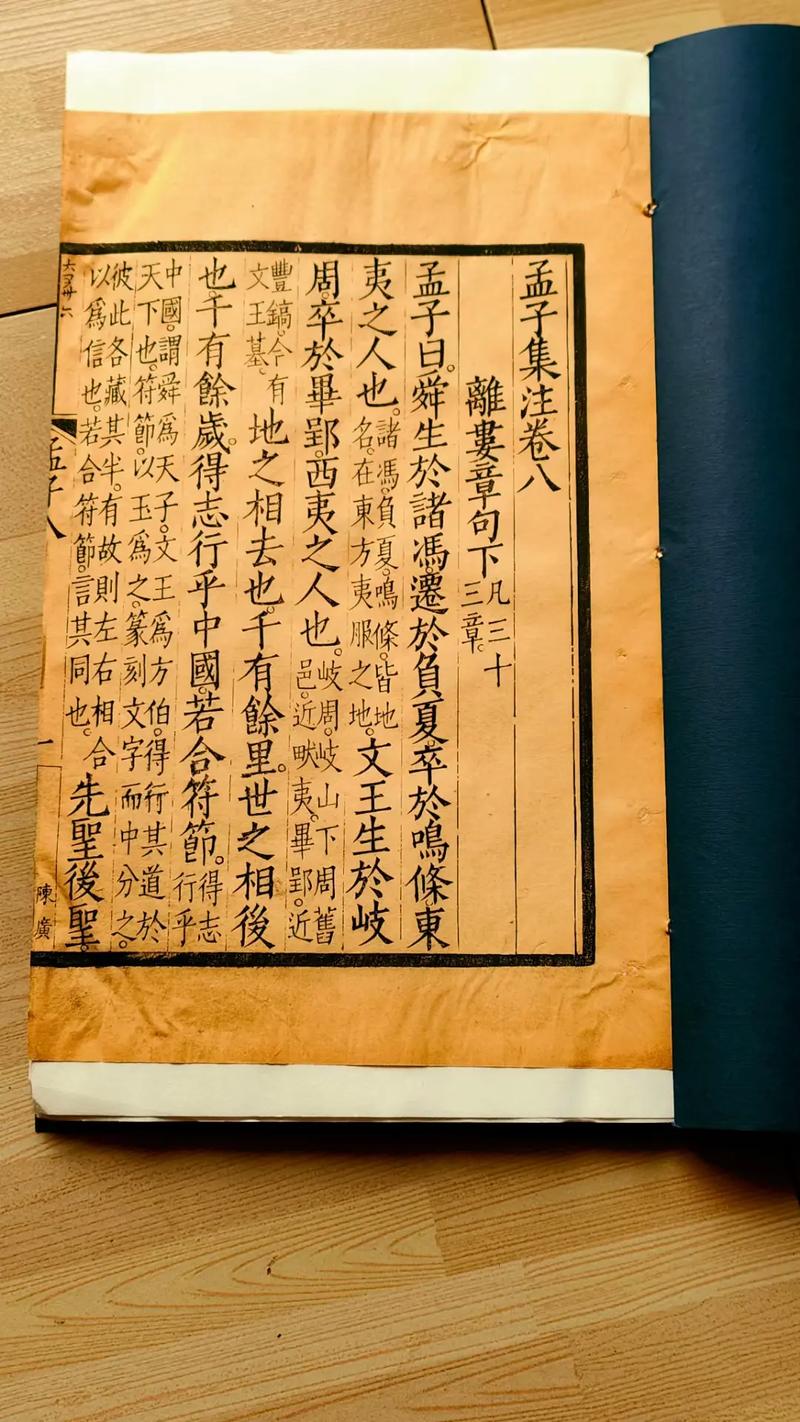 孟子集注卷八
離婁章句下凡三十三章。
孟子曰。舜生於諸馮。遷於負夏。卒於鳴條。東
夷之人也。諸馮。負夏。鳴條。皆地名。在東方夷服之地。文王生於岐
周。卒於畢郢。西夷之人也。岐周。岐山下周舊邑。近畎夷。畢郢。近
豐鎬。今有文王墓。地之相去也。千有餘里。世之相後
也。千有餘歲。得志行乎中國。若合符節。得志行乎
中國。謂舜爲天子。文王爲方伯。得行其道於天下也。符節。以玉爲之。篆刻文字而中分之。
彼此各藏其半。有故則左右相合以爲信也。若合符節。言其同也。先聖後聖。
孟子八
一
陳廣